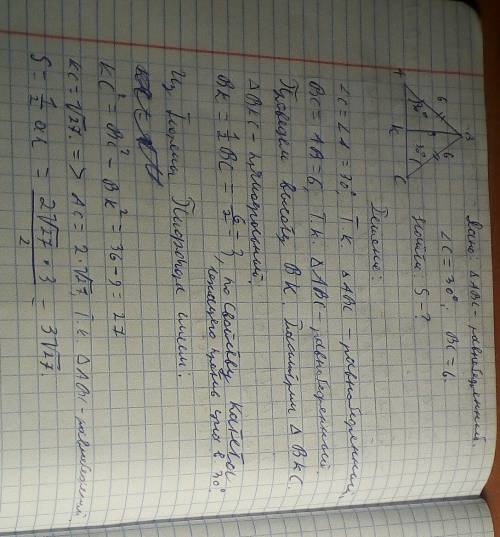 Дано: △ABC - равнобедренный.
∠C = 30°; BC = 6.
Найти: S - ?
B
6
6
30°
30°
A
K
C
Решение:
∠C = ∠A = 30°, Т.к. △ABC - равнобедренный,
BC = AB = 6, Т.к. △ABC - равнобедренный.
Проведём высоту BK. Рассмотрим △BKC.
△BKC - прямоугольный.
BK = 1/2 BC = 6/2 = 3, по свойству катета
лежащего против угла в 30°
Из Теоремы Пифагора имеем:
KC² = BC² - BK² = 36 - 9 = 27
KC = √27 => AC = 2·√27, Т.к. △ABC - равнобедренный.
S = 1/2 ah = 2√27 * 3 / 2 = 3√27.